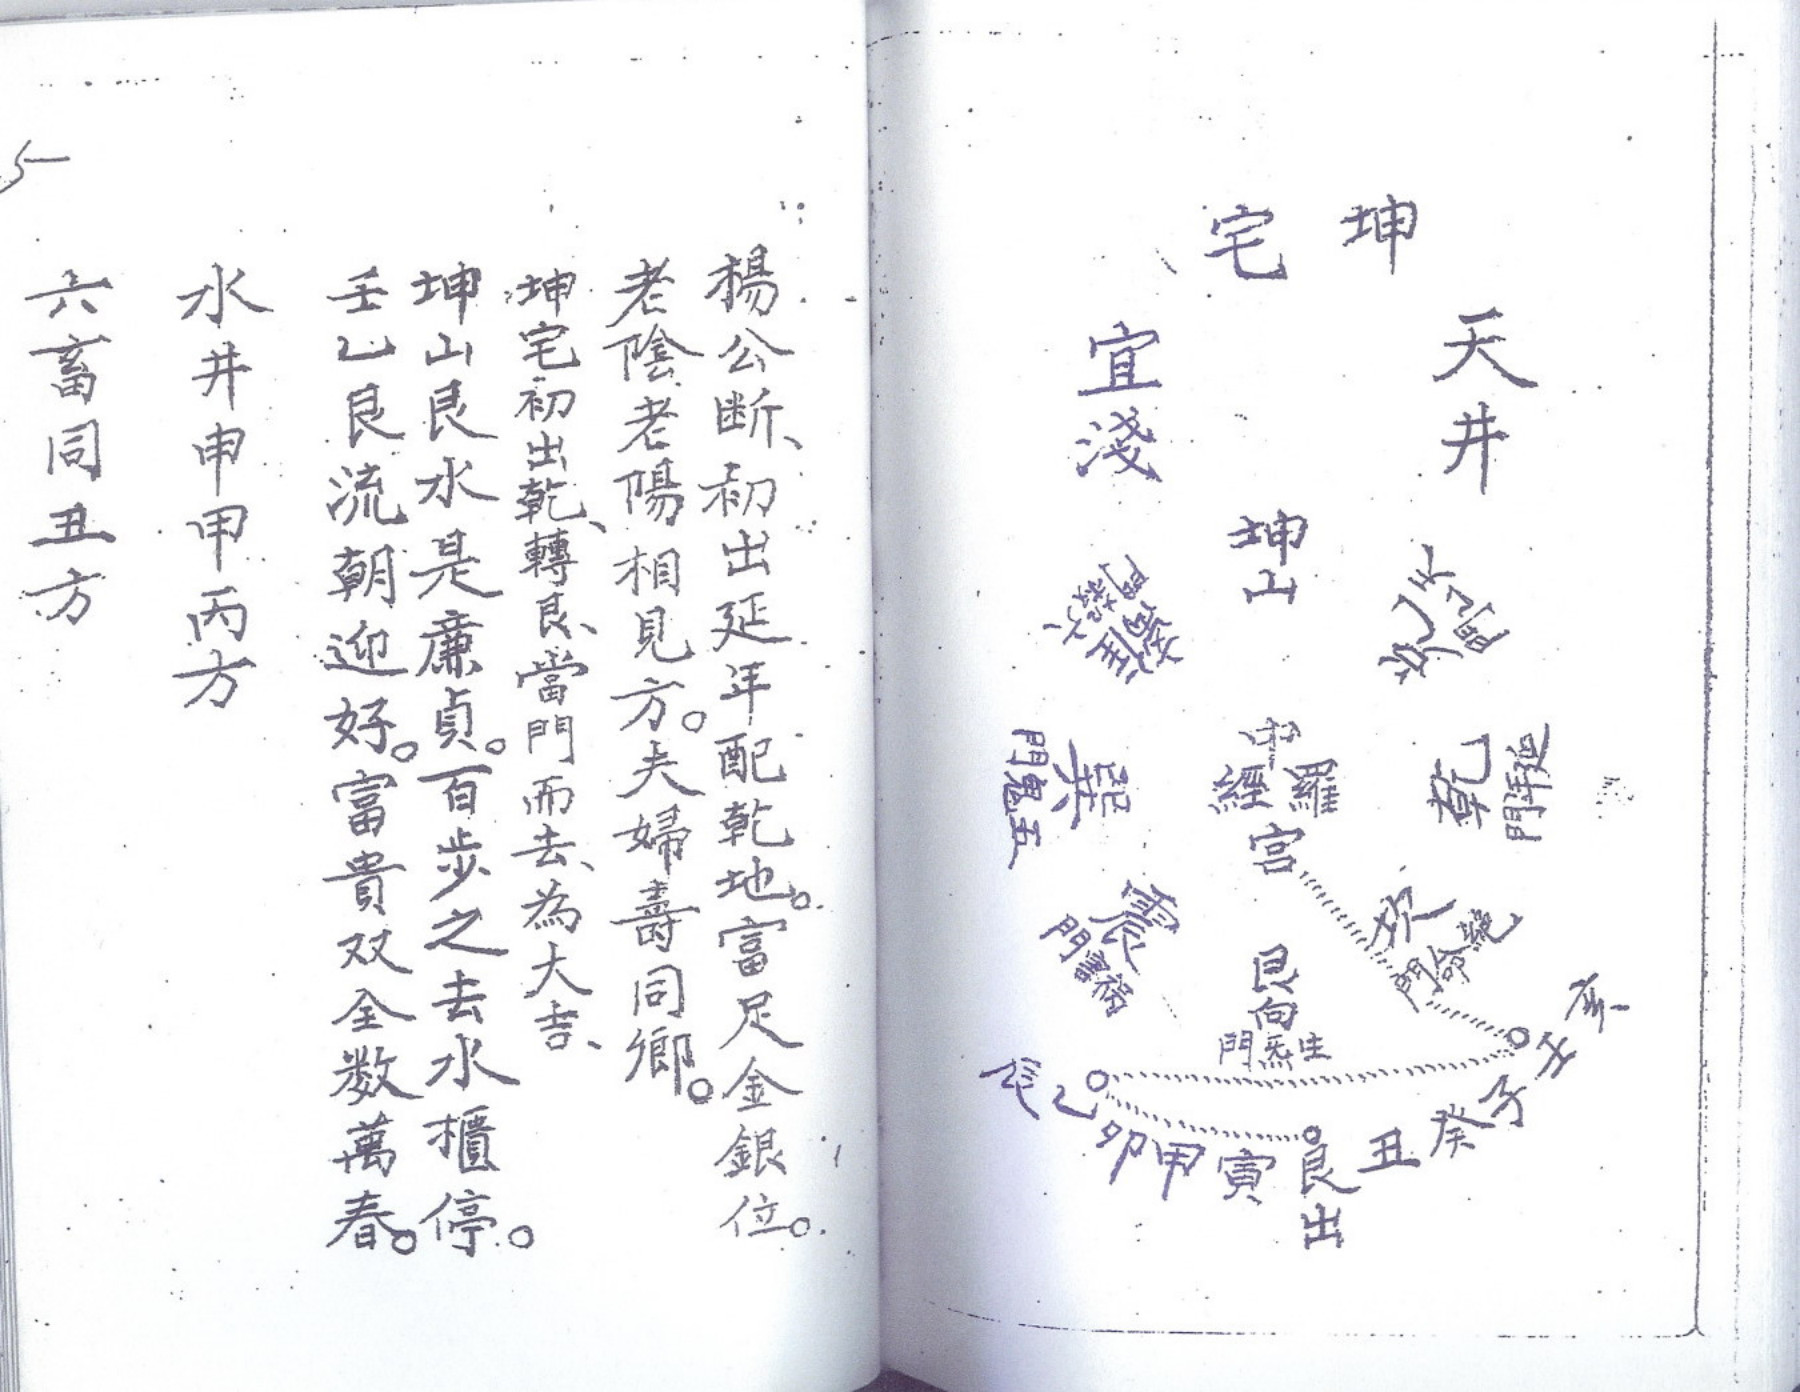 坤宅
天井
宜淺
坤山
天乙門
兌
六煞門
離
延年門
乾
中宮
羅經
巽
五鬼門
絕命門
坎
震
禍害門
艮向
生炁門
亥
壬
子
癸
丑
艮出
寅
甲
卯
乙
辰
楊公断、初出延年配乾地。富足金銀位。
老陰老陽相見方。夫婦壽同鄉。
坤宅初出乾、轉艮、當門而去、為大吉、
坤山艮水是廉貞。百步之去水櫃停。
壬乙艮流朝迎好。富貴双全数萬春。
水井申甲丙方
六畜同丑方